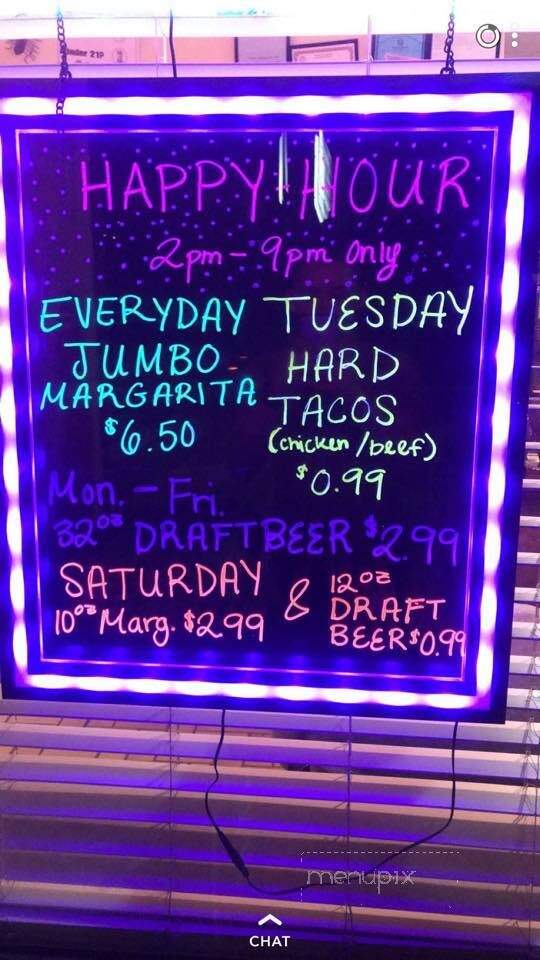 under 21?
HAPPY HOUR
2pm - 9pm Only
EVERYDAY
JUMBO
MARGARITA
$6.50
TUESDAY
HARD
TACOS
(chicken/beef)
$0.99
Mon. - Fri.
32oz DRAFT BEER $2.99
SATURDAY
10oz Marg. $2.99
&
12oz
DRAFT
BEER $0.99
menupix
CHAT